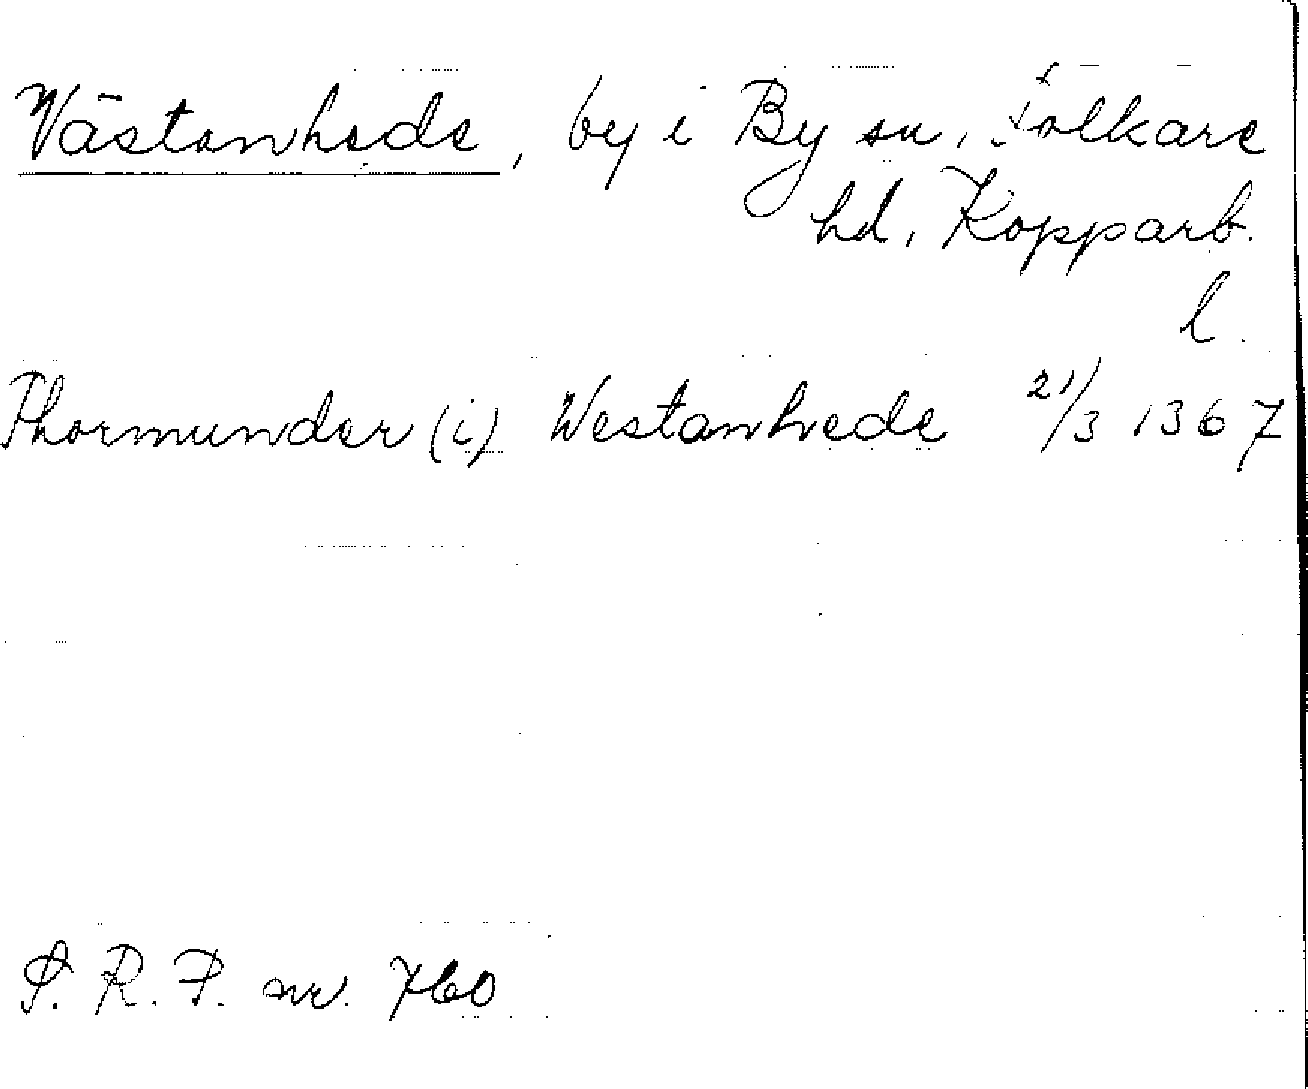 Västanhede, by i By sn, Folkare
hd, Kopparb.
l.
Thormunder (i) Westanhede 21/3 1367
S. R. P. nr. 760